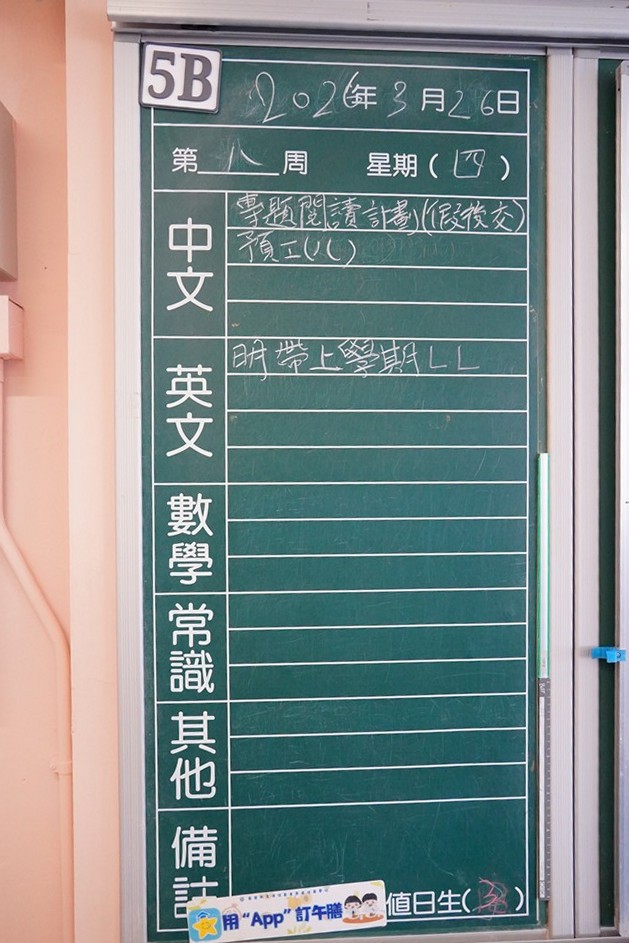 5B
2026年3月26日
第八周 星期(四)
中文
專題閱讀計劃(假後交)
預工(八)
英文
明帶上學期LL
數學
常識
其他
備註
用“App”訂午膳
值日生( )